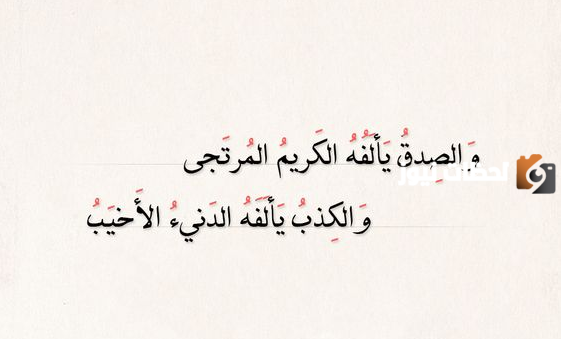 وَ الصِدقُ يَألَفُهُ الكَريمُ المُرتَجى
لحظات نيوز
وَ الكِذبُ يَألَفَهُ الدَنيءُ الأَخيَبُ